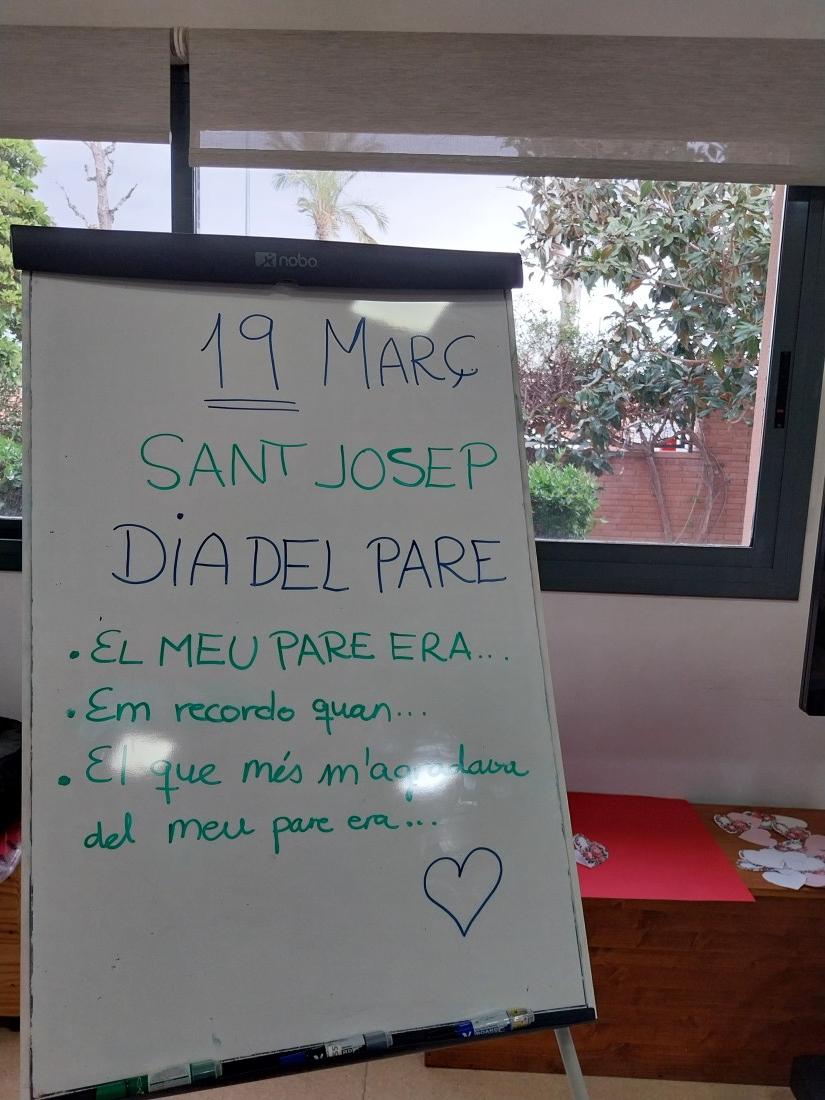 nobo
19 MARÇ
SANT JOSEP
DiA DEL PARE
• EL MEU PARE ERA...
• Em recordo quan...
• El que més m'agradava
del meu pare era...